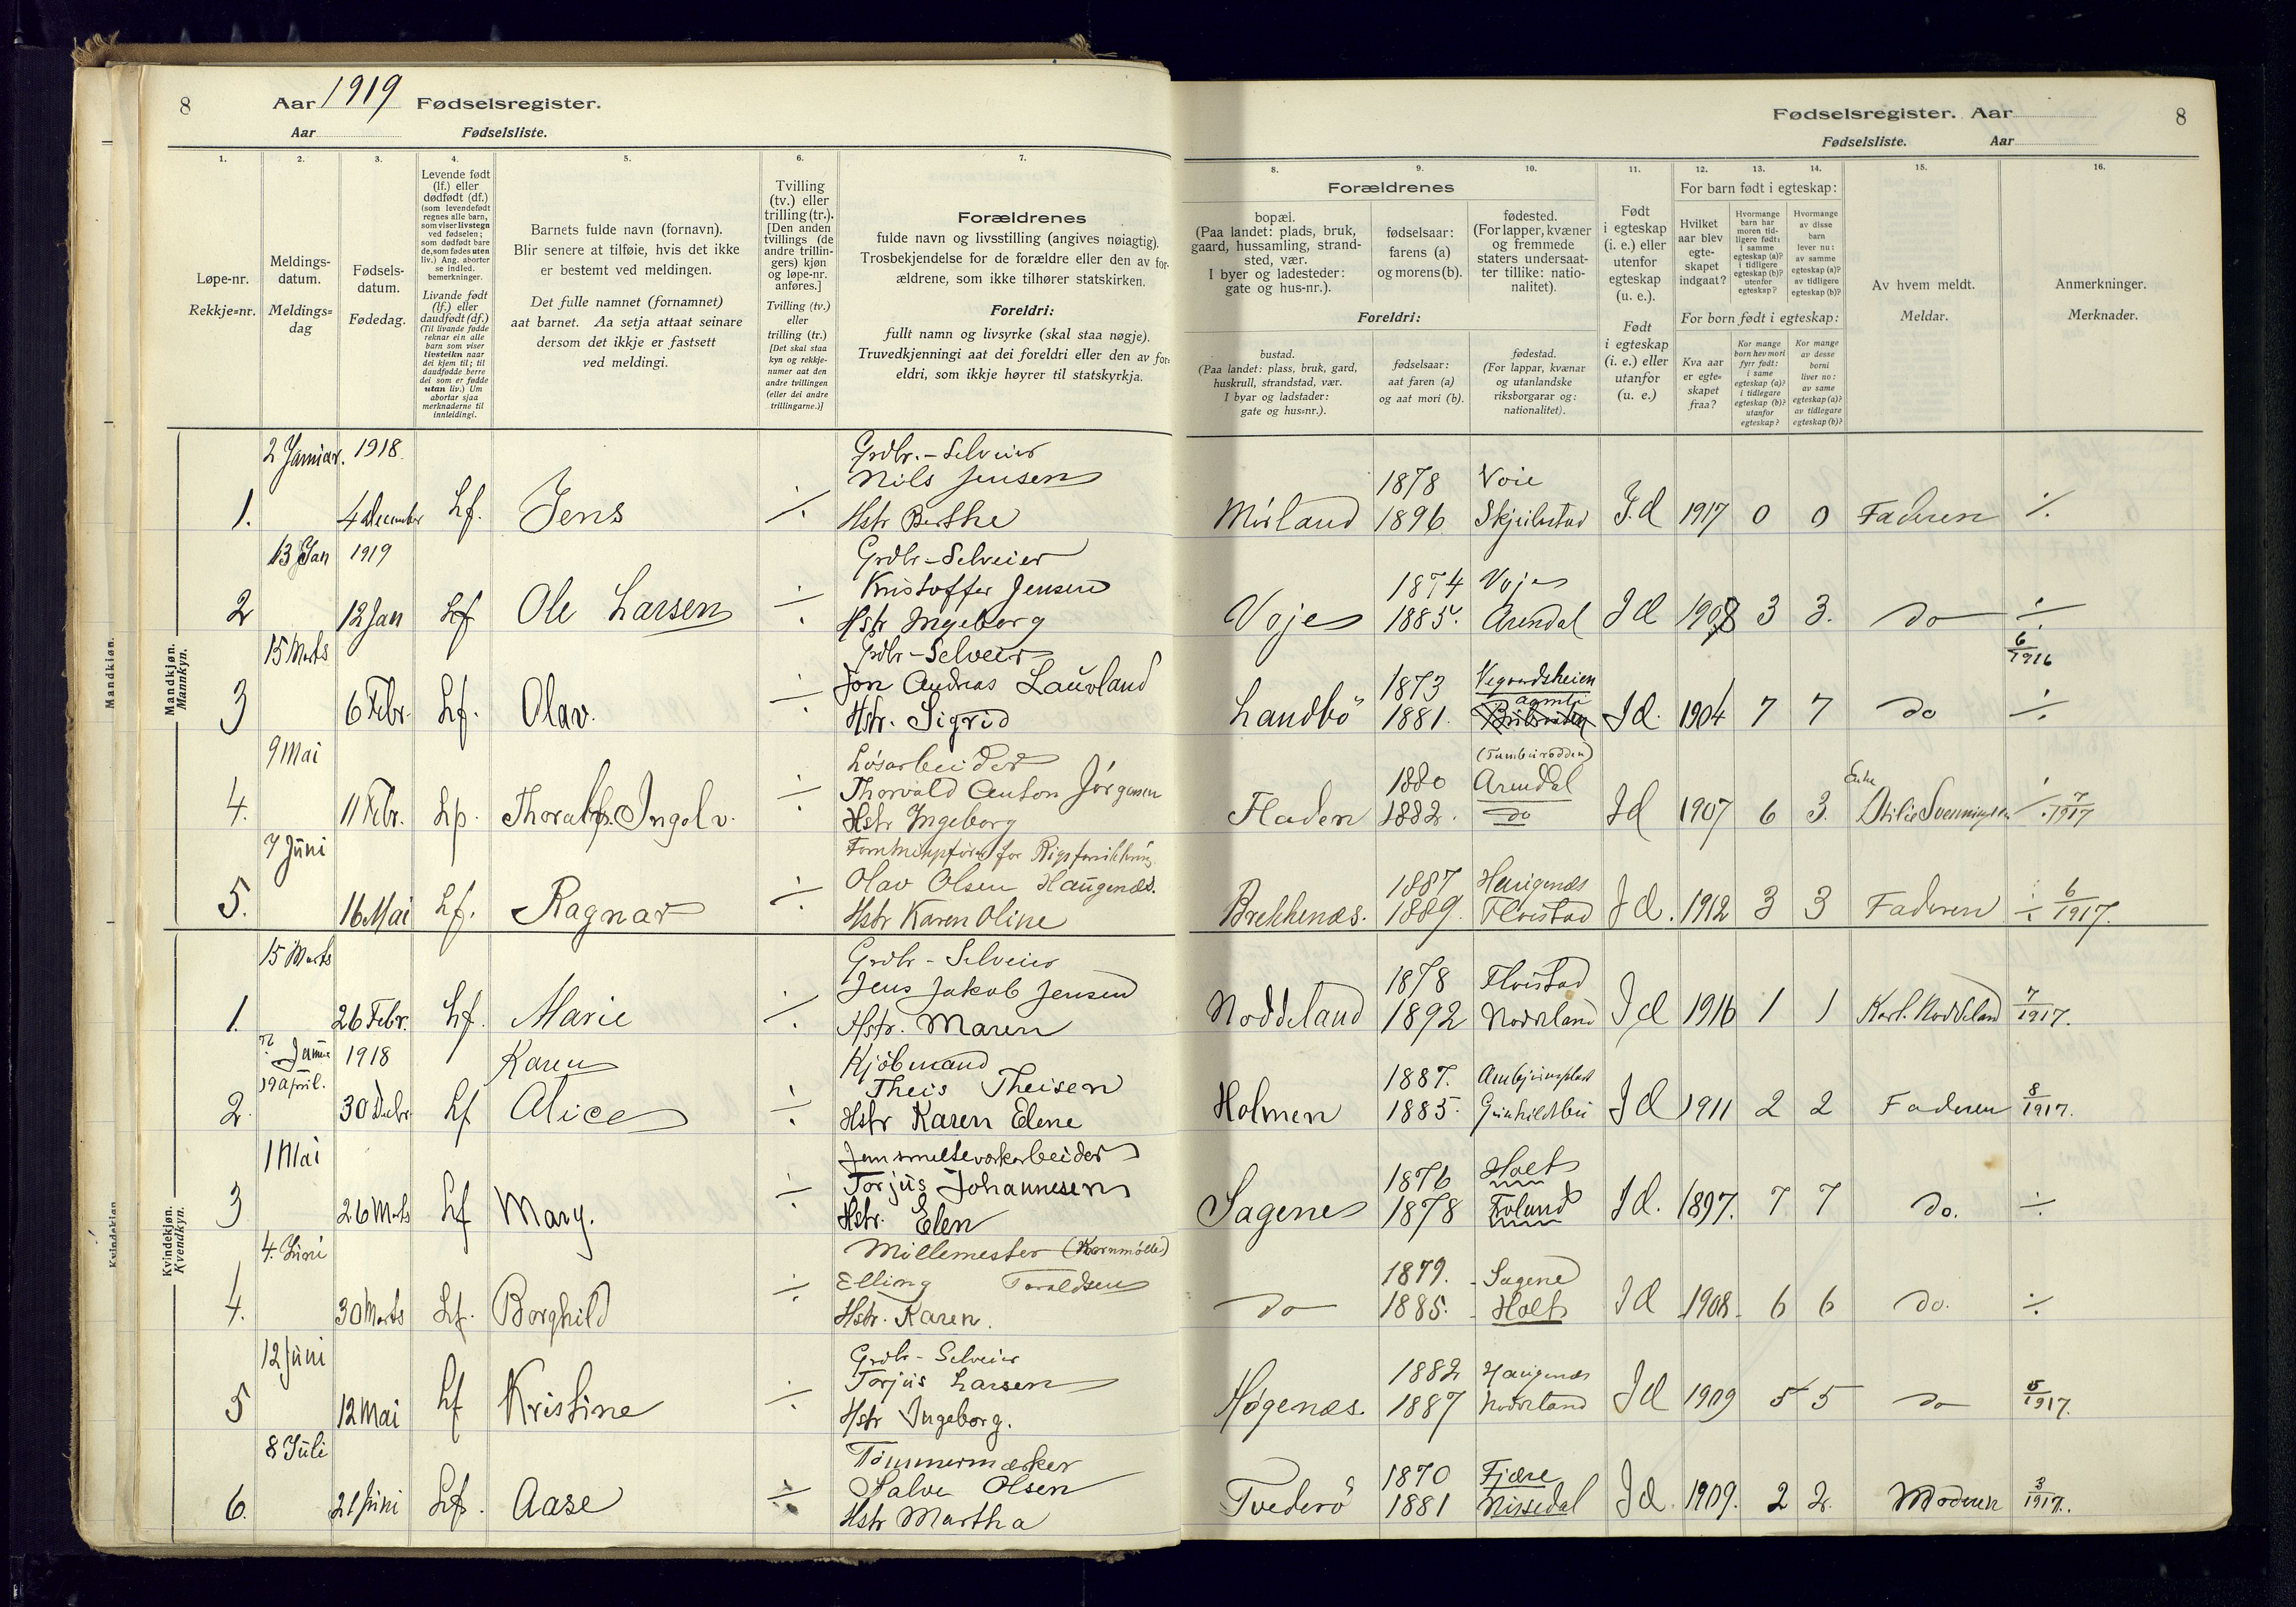 8 Aar 1919 Fødselsregister.
Aar Fødselsliste.
1.
2.
3.
4.
5.
6.
7.
Løpe-nr.
Rekkje=nr.
Meldings-
datum.
Meldings=
dag
Fødsels-
datum.
Fødedag.
Levende født
(lf.) eller
dødfødt (df.)
(som levendefødt
regnes alle barn,
som viser livstegn
ved fødselen;
som dødfødt bare
de, som fødes uten
liv.) Ang. aborter
se indled.
bemerkninger.
Livande født
(lf.) eller
daudfødt (df.)
(Til livande fødde
reknar ein alle
barn som viser
livsteikn naar
dei kjem til; til
daudfødde berre
dei som er fødde
utan liv.) Um
abortar sjaa
merknaderne til
innleidingi.
Barnets fulde navn (fornavn).
Blir senere at tilføie, hvis det ikke
er bestemt ved meldingen.
Det fulle namnet (fornamnet)
aat barnet. Aa setja attaat seinare
dersom det ikkje er fastsett
ved meldingi.
Tvilling
(tv.) eller
trilling (tr.).
[Den anden
tvillings (de
andre trillin-
gers) kjøn
og løpe-nr.
anføres.]
Tvilling (tv.)
eller
trilling (tr.)
[Det skal staa
kyn og rekkje-
numer aat den
andre tvillingen
(eller dei andre
trillingarne.)]
Forældrenes
fulde navn og livsstilling (angives nøiagtig).
Trosbekjendelse for de forældre eller den av for-
ældrene, som ikke tilhører statskirken.
Foreldri:
fullt namn og livsyrke (skal staa nøgje).
Truvedkjenningi aat dei foreldri eller den av for-
eldri, som ikkje høyrer til statskyrkja.
Mandkjøn.
Mandkjøn.
Mannkyn.
2 Januar. 1918. Grdbr. - Selveier
Nils Jensen
1. 4 December Lf. Jens ./. Hstr Berthe
13 Jan 1919 Grdbr - Selveier
Kristoffer Jensen
2 12 Jan Lf Ole Larsen ./. Hstr Ingeborg
15 Marts Grdbr - Selveier
Jon Andreas Lauvland
3 6 Febr. Lf. Olav. ./. Hstr. Sigrid
9 Mai Løsarbeider
Thorvald Anton Jörgensen
4. 11 Febr. Ingolv. ./. Hstr Ingeborg
7 Juni
Olav Olsen Haugenæs.
5. 16 Mai Lf. Ragnar ./. Hstr Karen Oline
Kvindekjøn.
Kvindekjøn.
Kvendkyn.
15 Marts Grdbr - Selveier
Jens Jakob Jensen
1. 26 Febr. Lf. Marie ./. Hstr. Maren
1918 Karen Kjöbmand
19 April. Theis Theisen
2. 30 Decbr Lf Alice ./. Hstr Karen Elene
1 Mai Jernsmelteverkarbeider
Torjus Johannesen
3 26 Marts Lf Mary. ./. Hstr. Elen
4. Juni Møllemester (Kornmölle)
Elling Taraldsen
4. 30 Marts Lf. Borghild ./. Hstr. Karen.
12 Juni Grdbr - Selveier
Torjus Larsen
5 12 Mai Lf Kristine ./. Hstr Ingeborg.
8 Juli Tömmermerker
Salve Olsen
6. 21 Juni Lf. Aase ./. Hstr Martha
Fødselsregister. Aar 8
Fødselsliste. Aar
8.
9.
10.
11.
12.
13.
14.
15.
16.
Forældrenes
bopæl.
(Paa landet: plads, bruk,
gaard, hussamling, strand-
sted, vær.
I byer og ladesteder:
gate og hus-nr.).
fødselsaar:
farens (a)
og morens (b).
fødested.
(For lapper, kvæner
og fremmede
staters undersaat-
ter tillike: natio-
nalitet).
Foreldri:
bustad.
(Paa landet: plass, bruk, gard,
huskrull, strandstad, vær.
I byar og ladstader:
gate og hus=nr.).
fødselsaar:
aat faren (a)
og aat mori (b).
fødestad.
(For lappar, kvænar
og utanlandske
riksborgarar og:
nationalitet).
Født
i egteskap
(i. e.) eller
utenfor
egteskap
(u. e.).
Født
i egteskap
(i. e.) eller
utanfor
(u. e.)
For barn født i egteskap:
Hvilket
aar blev
egte-
skapet
indgaat?
Hvormange
barn har
moren tid-
ligere født:
i samme
egteskap (a)?
i tidligere
egteskap (b)?
utenfor
egteskap?
Hvormange
av disse
barn
lever nu:
av samme
egteskap (a)?
av tidligere
egteskap (b)?
For born født i egteskap:
Kva aar
er egte=
skapet
fraa?
Kor mange
born hev mori
fyrr født:
i same
egteskap (a)?
i tidlegare
egteskap (b)?
utanfor
egteskap?
Kor mange
av desse
borni
liver no:
av same
egteskap (a)?
av tidlegare
egteskap (b)?
Av hvem meldt.
Meldar.
Anmerkninger.
Merknader.
1878 Voie
Mirland 1896 Skjulestad J.d 1917 0 0 Faderen ./.
1874 Voje
Voje 1885. Arendal Jd 1908 3 3. do ./.
6/1916
1873 Vegaardsheien
Landbö 1881. Jd. 1904 7 7 do ./.
1880 Arendal Enke
Fladen 1882. do Jd 1907 6 3. ./. 7/1917
1887 Haugenæs
Brekkenæs. 1889. Flovstad Jd. 1912 3 3 Faderen ./. 6/1917.
1878 Flovstad
Noddeland 1892 Noddeland Jd 1916 1 1 Karl. Noddeland 7/1917.
1887.
Holmen 1885. Jd 1911 2 2 Faderen 8/1917.
1876 Holt
Sagene 1878 Froland Jd. 1897. 7 7 do. ./.
1879. Sagene
do 1885. Holt Jd 1908. 6 6 do. ./.
1882 Haugenæs
Høgenæs. 1887 Noddeland Jd 1909 5 5 do 5/1917.
1870 Fjære
Tvederö 1881 Nissedal Jd. 1909. 2 2. Moderen 3/1917.